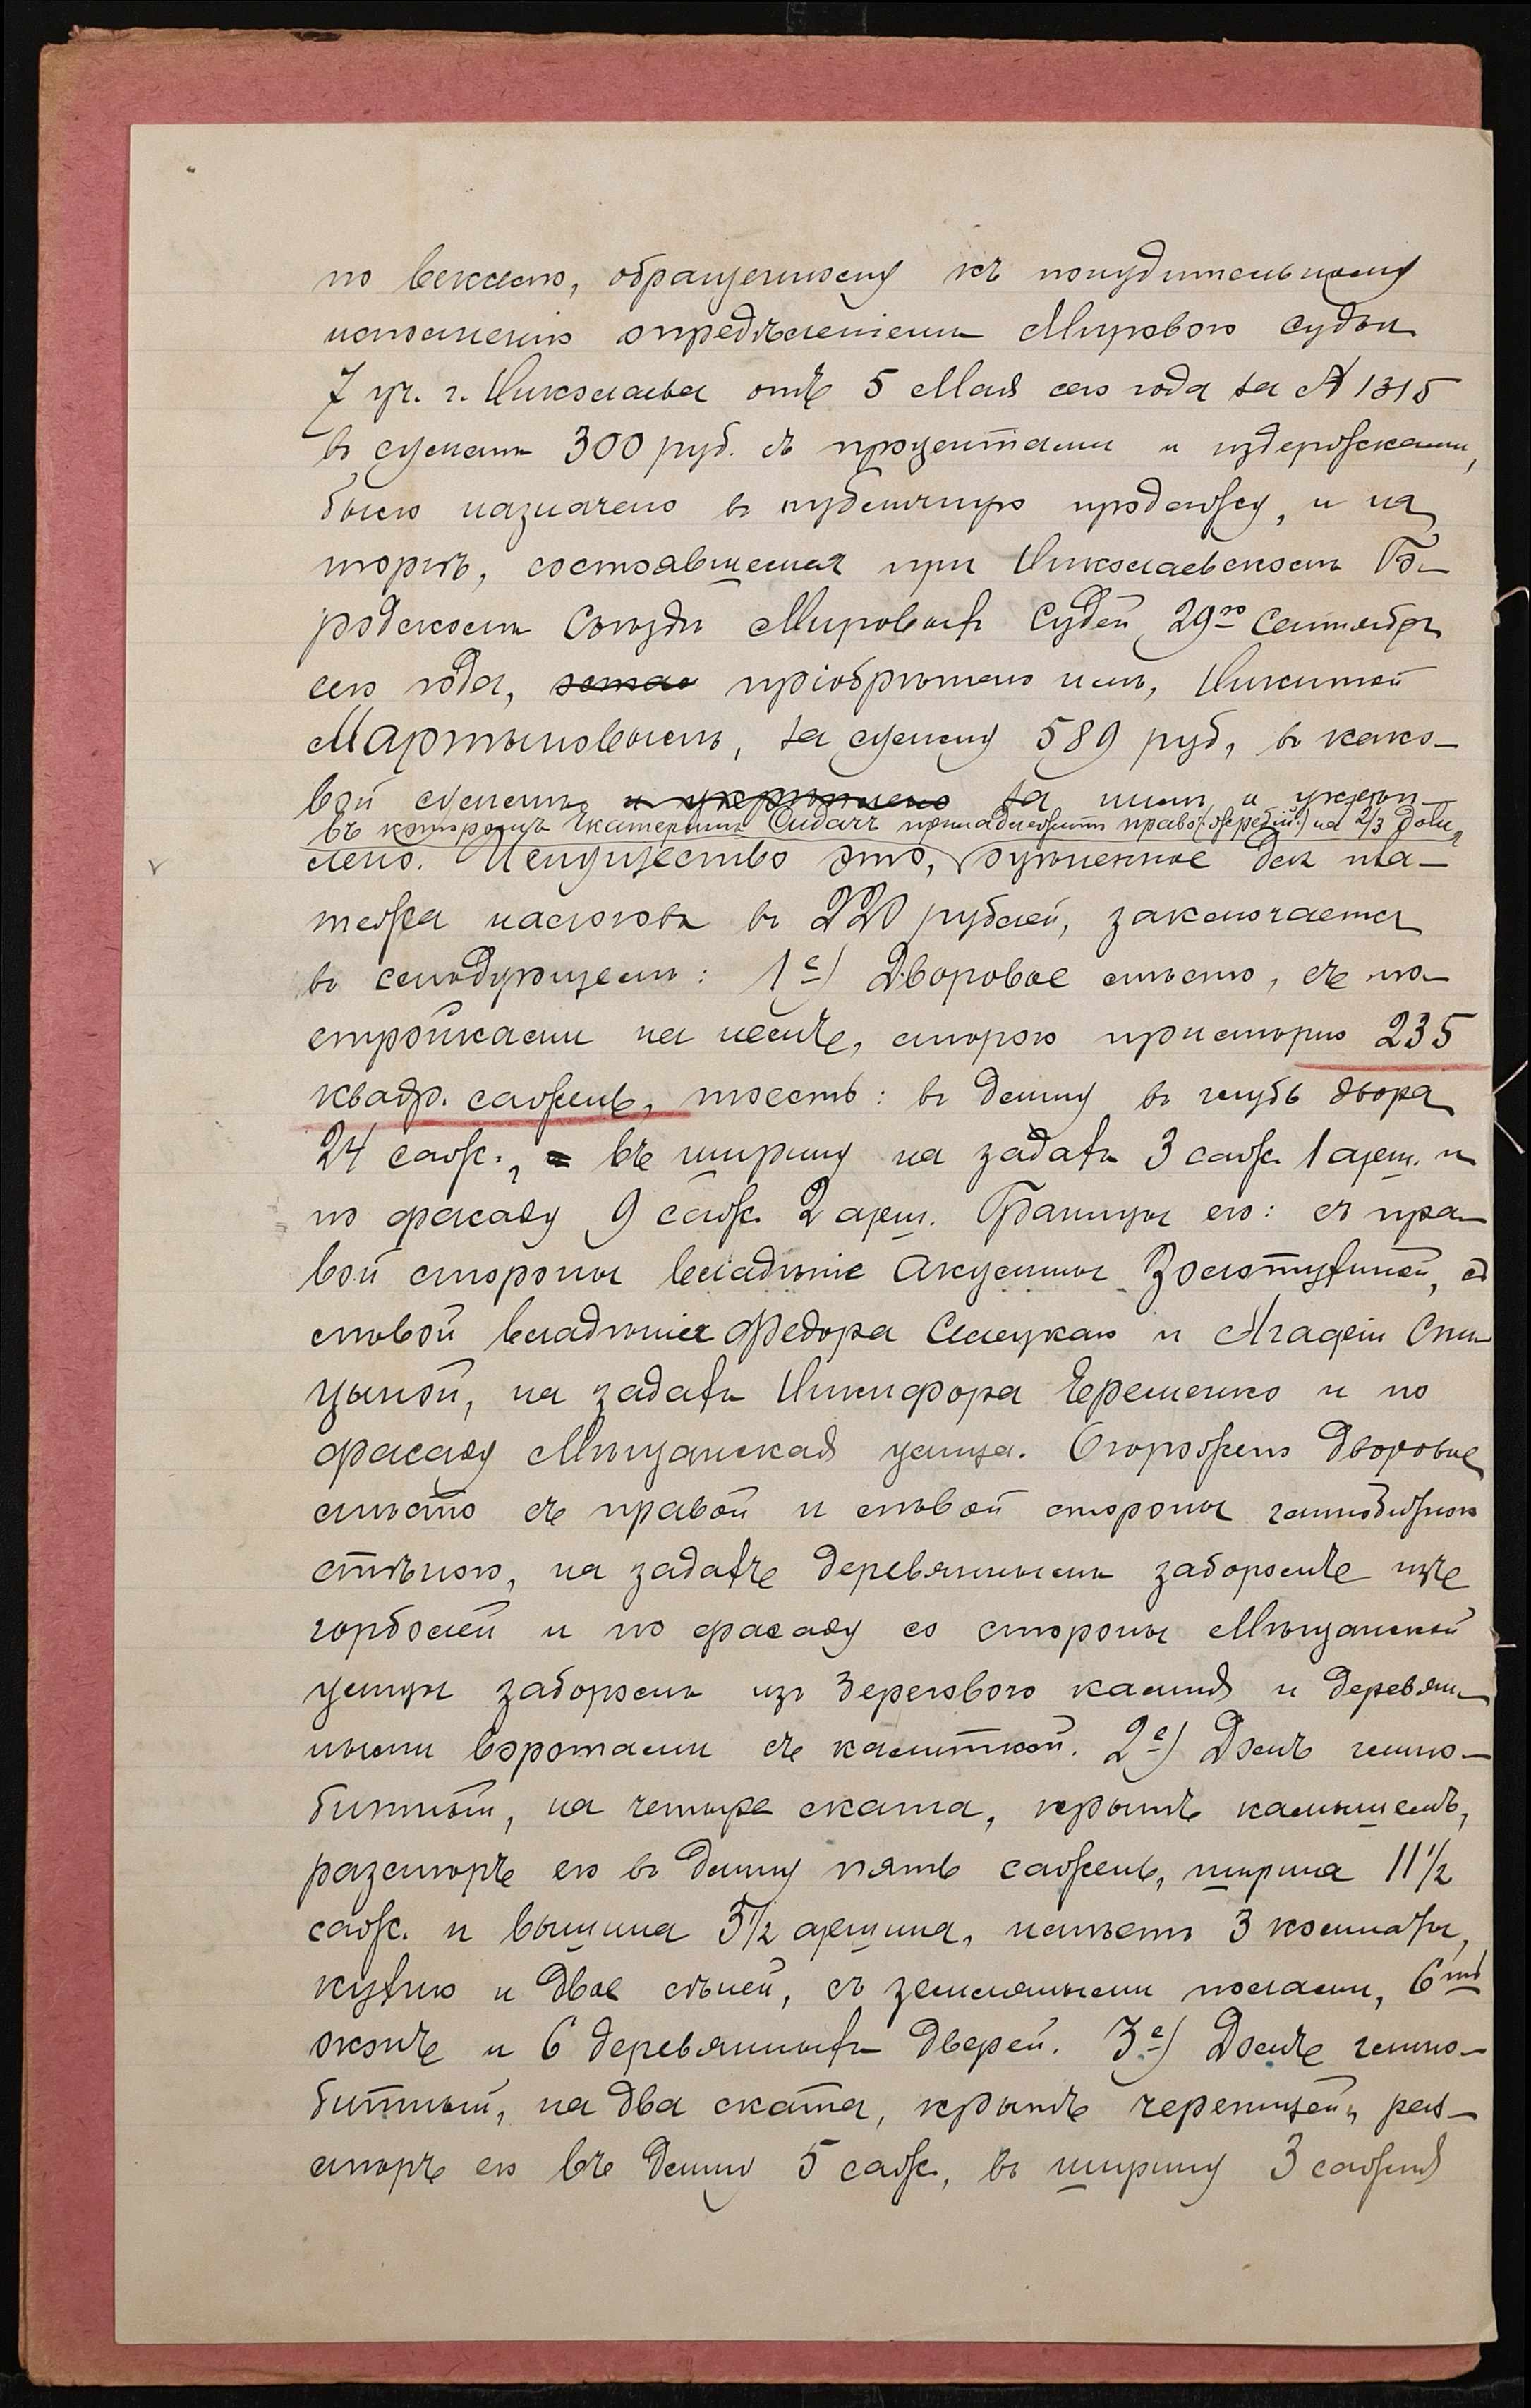 по векселю, обращенному къ понудительному
исполненію опредѣленіемъ Мирового Судьи
7 уч. г. Николаева отъ 5 Мая сего года за № 1315
въ суммѣ 300 руб. съ процентами и издержками,
было назначено въ публичную продажу, и на
торгѣ, состоявшемся при Николаевскомъ Го-
родскомъ Съѣздѣ Мировыхъ Судей 29го Сентября
сего года, пріобрѣтено имъ, Никитой
Мартыновымъ, за сумму 589 руб, въ како-
вой суммѣ и укрѣплено за нимъ и укрѣп-
въ которомъ Екатеринѣ Сидачъ принадлежитъ право (жеребій) на 2/3 доли,
лено. Имущество это, оцѣненное для пла-
тежа налоговъ въ 220 рублей, заключается
въ слѣдующемъ: 1е) Дворовое мѣсто, съ по-
стройками на немъ, мѣрою примѣрно 235
квадр. сажень, тоесть: въ длину въ глубь двора
24 саж., въ ширину на задахъ 3 саж. 1 арш. и
по фасаду 9 саж. 2 арш. Границы его: съ пра-
вой стороны владѣніе Акулины Золотухиной, съ
лѣвой владѣнія Федора Слецкаго и Агафіи Спи-
цыной, на задахъ Никифора Еременко и по
фасаду Мѣщанская улица. Огорожено дворовое
мѣсто съ правой и лѣвой стороны глинобитною
стѣною, на задахъ деревяннымъ заборомъ изъ
горбылей и по фасаду со стороны Мѣщанской
улицы заборомъ изъ берегового камня и деревян-
ными воротами съ калиткой. 2е) Домъ глино-
битный, на четыре ската, крытъ камышемъ,
размѣръ его въ длину пять сажень, ширина 11½
саж. и вышина 3½ аршина, имѣетъ 3 комнаты,
кухню и двое сѣней, съ земляными полами, 6ть
оконъ и 6 деревянныхъ дверей. 3е) Домъ глино-
битный, на два ската, крытъ черепицей, раз-
мѣръ его въ длину 5 саж., въ ширину 3 сажня